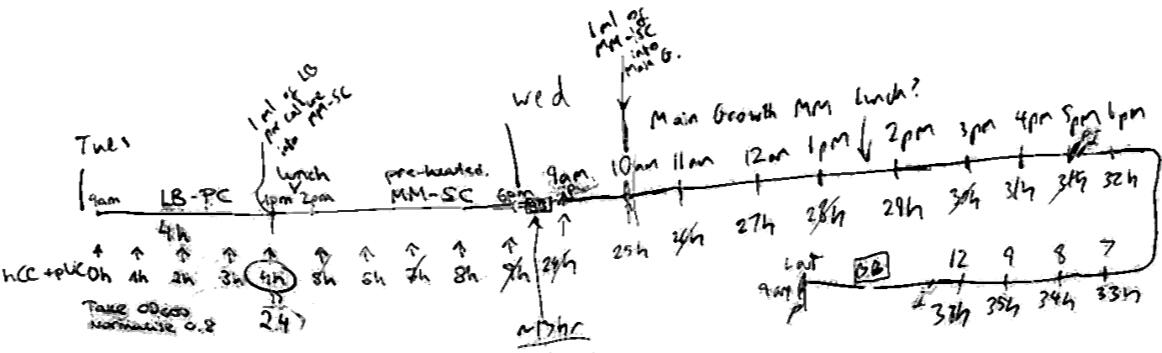 Tues
9am
LB-PC
4h
1 ml of LB
pre culture
into MM-SC
1pm
lunch
2pm
pre-heated
MM-SC
6pm
wed
9am
1 ml of
MM-SC
into
Main G.
Main Growth MM
lunch?
10am 11am 12am 1pm 2pm 3pm 4pm 5pm 6pm
0h 1h 2h 3h 4h 5h 6h 7h 8h 9h 24h
25h 26h 27h 28h 29h 30h 31h 31h 32h
Take OD600
Normalise 0.8
2.4
~13hr
9am
12 9 8 7
35h 34h 33h